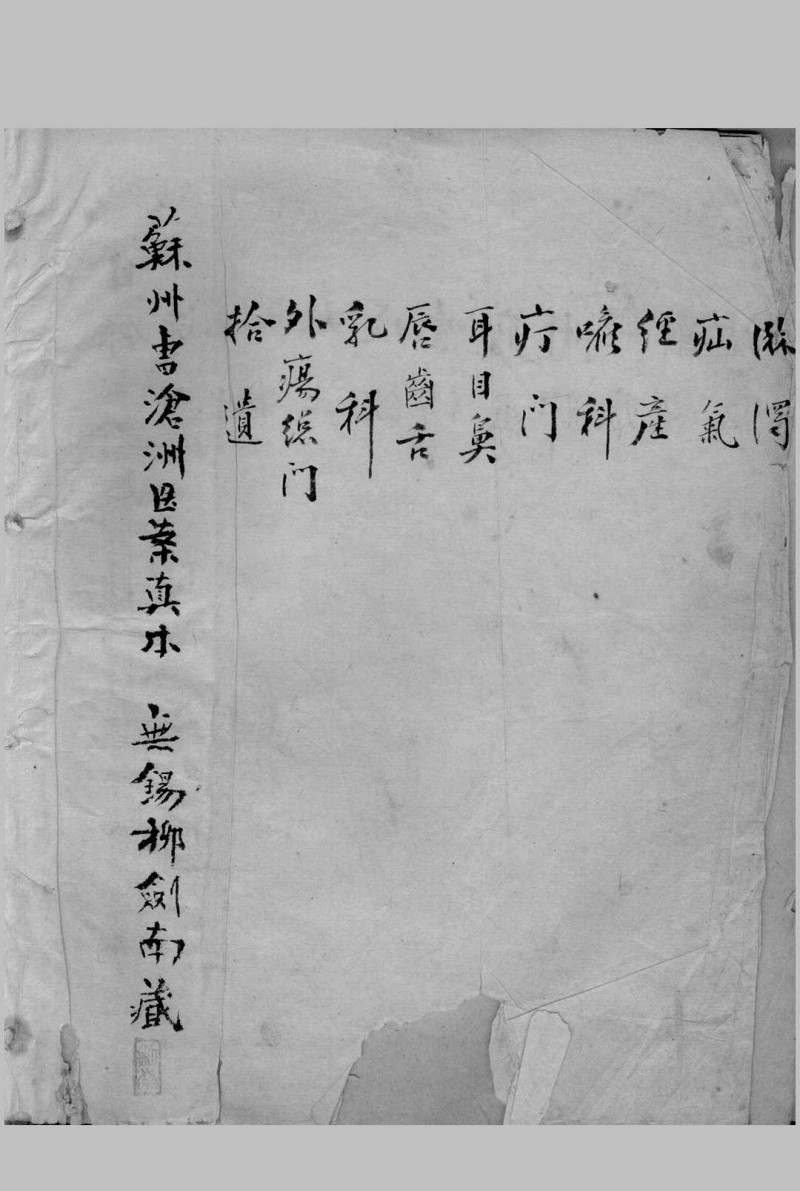 淋濁
疝氣
經産
喉科
疔门
耳目鼻
唇齒舌
乳科
外瘍總门
拾遺
蘇州曹滄洲医案真本 無錫柳劍南藏